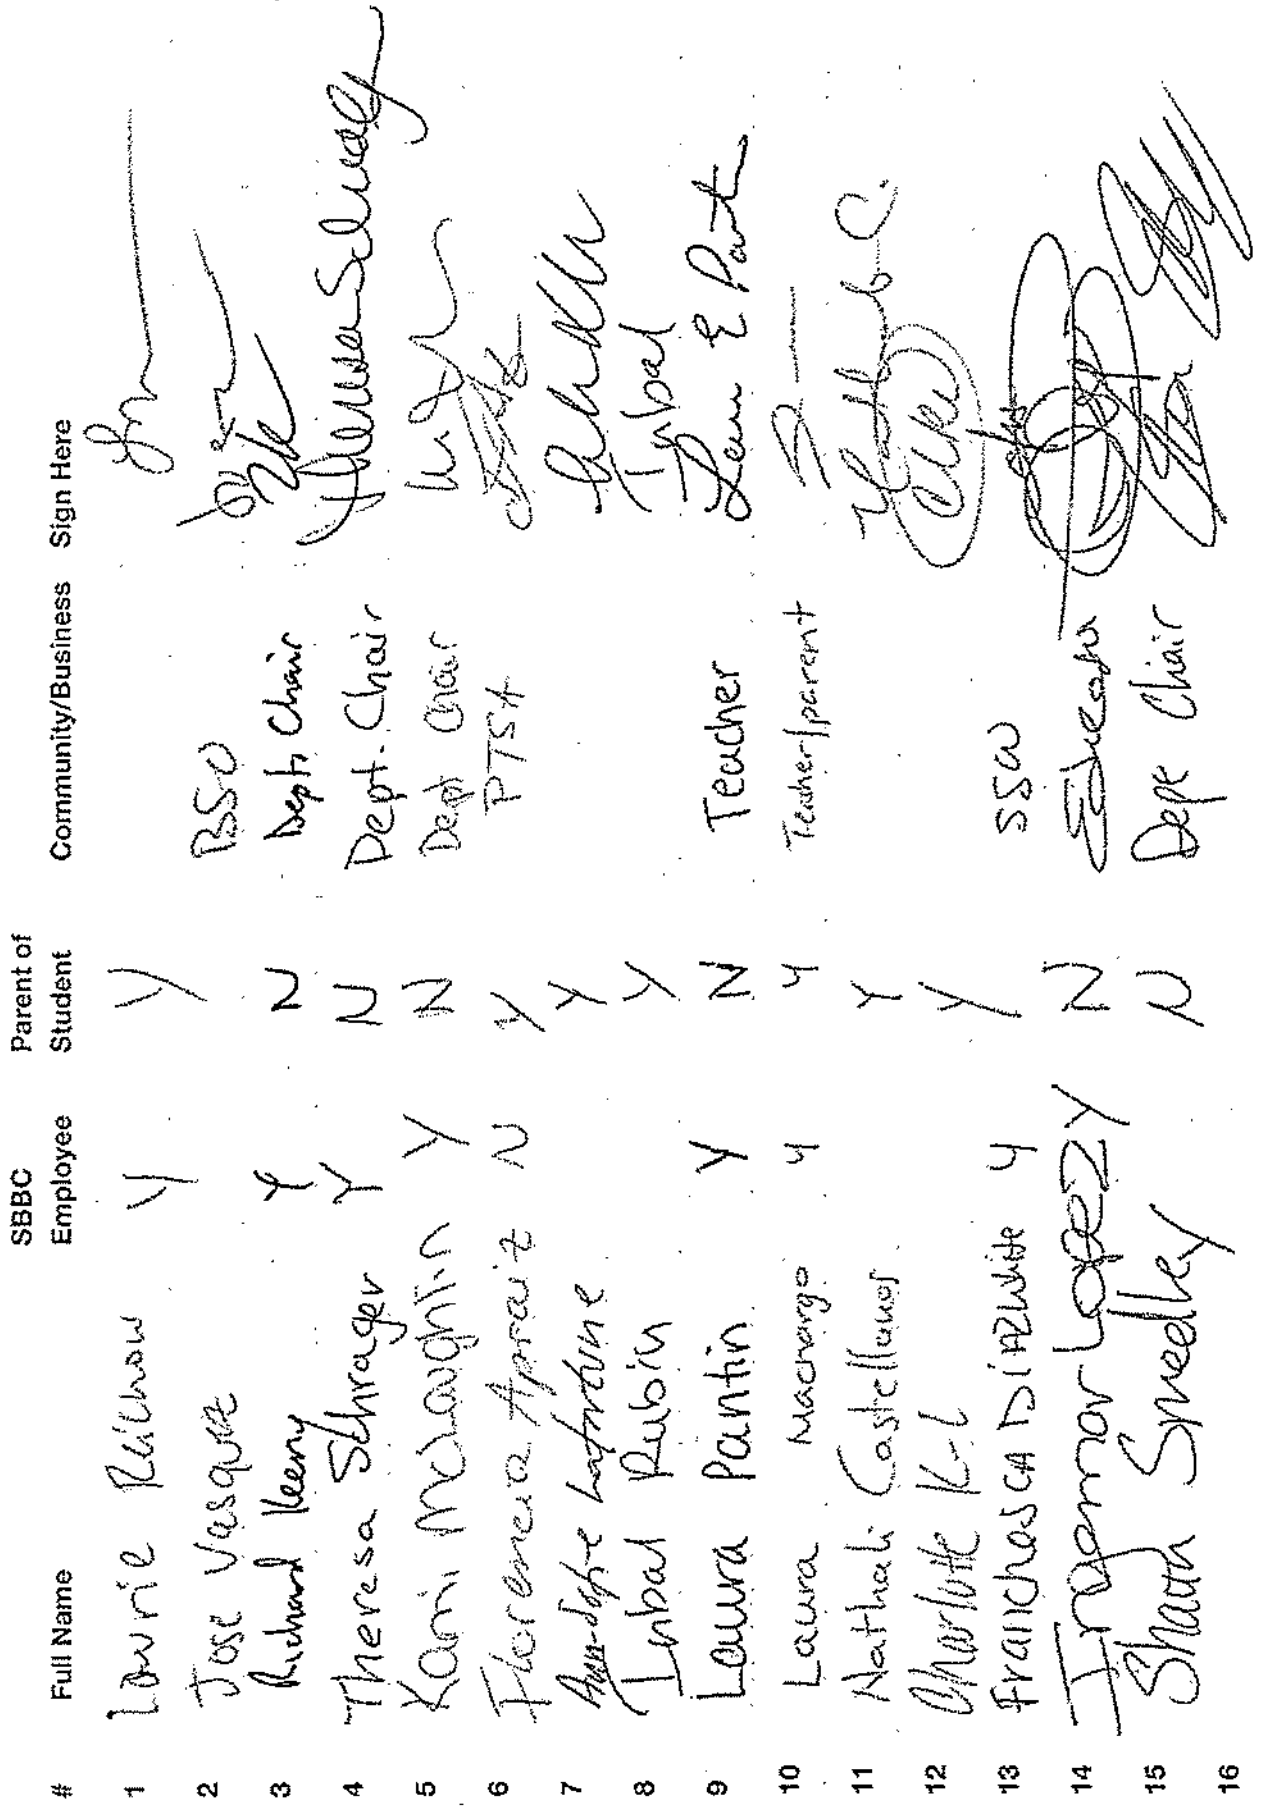 # Full Name SBBC Employee Parent of Student Community/Business Sign Here
1 Laurie Y Y
2 Jose Vasquez BSO
3 Richard Keeny Y N Dept. Chair
4 Theresa Schrager Y N Dept. Chair Theresa Schrager
5 Karri McLaughlin Y N Dept Chair
6 Florencia Apraiz N Y PTSA
7 Y
8 Inbal Rubin Y Inbal
9 Laura Pantin Y N Teacher
10 Laura Machargo Y Y Teacher/parent
11 Nathali Castellanos Y
12 Charlotte K-L Y
13 Franchesca DiazWhite Y Y SSW
14 Ingemar Lopez Y N
15 Shaun Smedley N Dept Chair
16